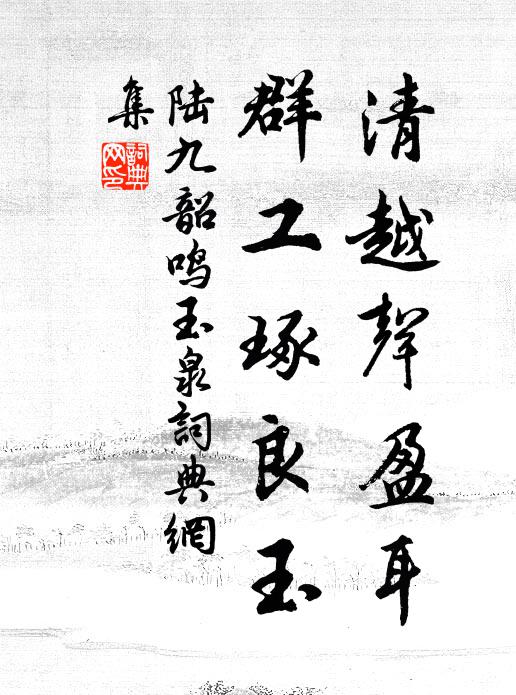 清越聲盈耳
群工琢良玉
陆九韶鸣玉泉詞典網
集
詞典网印